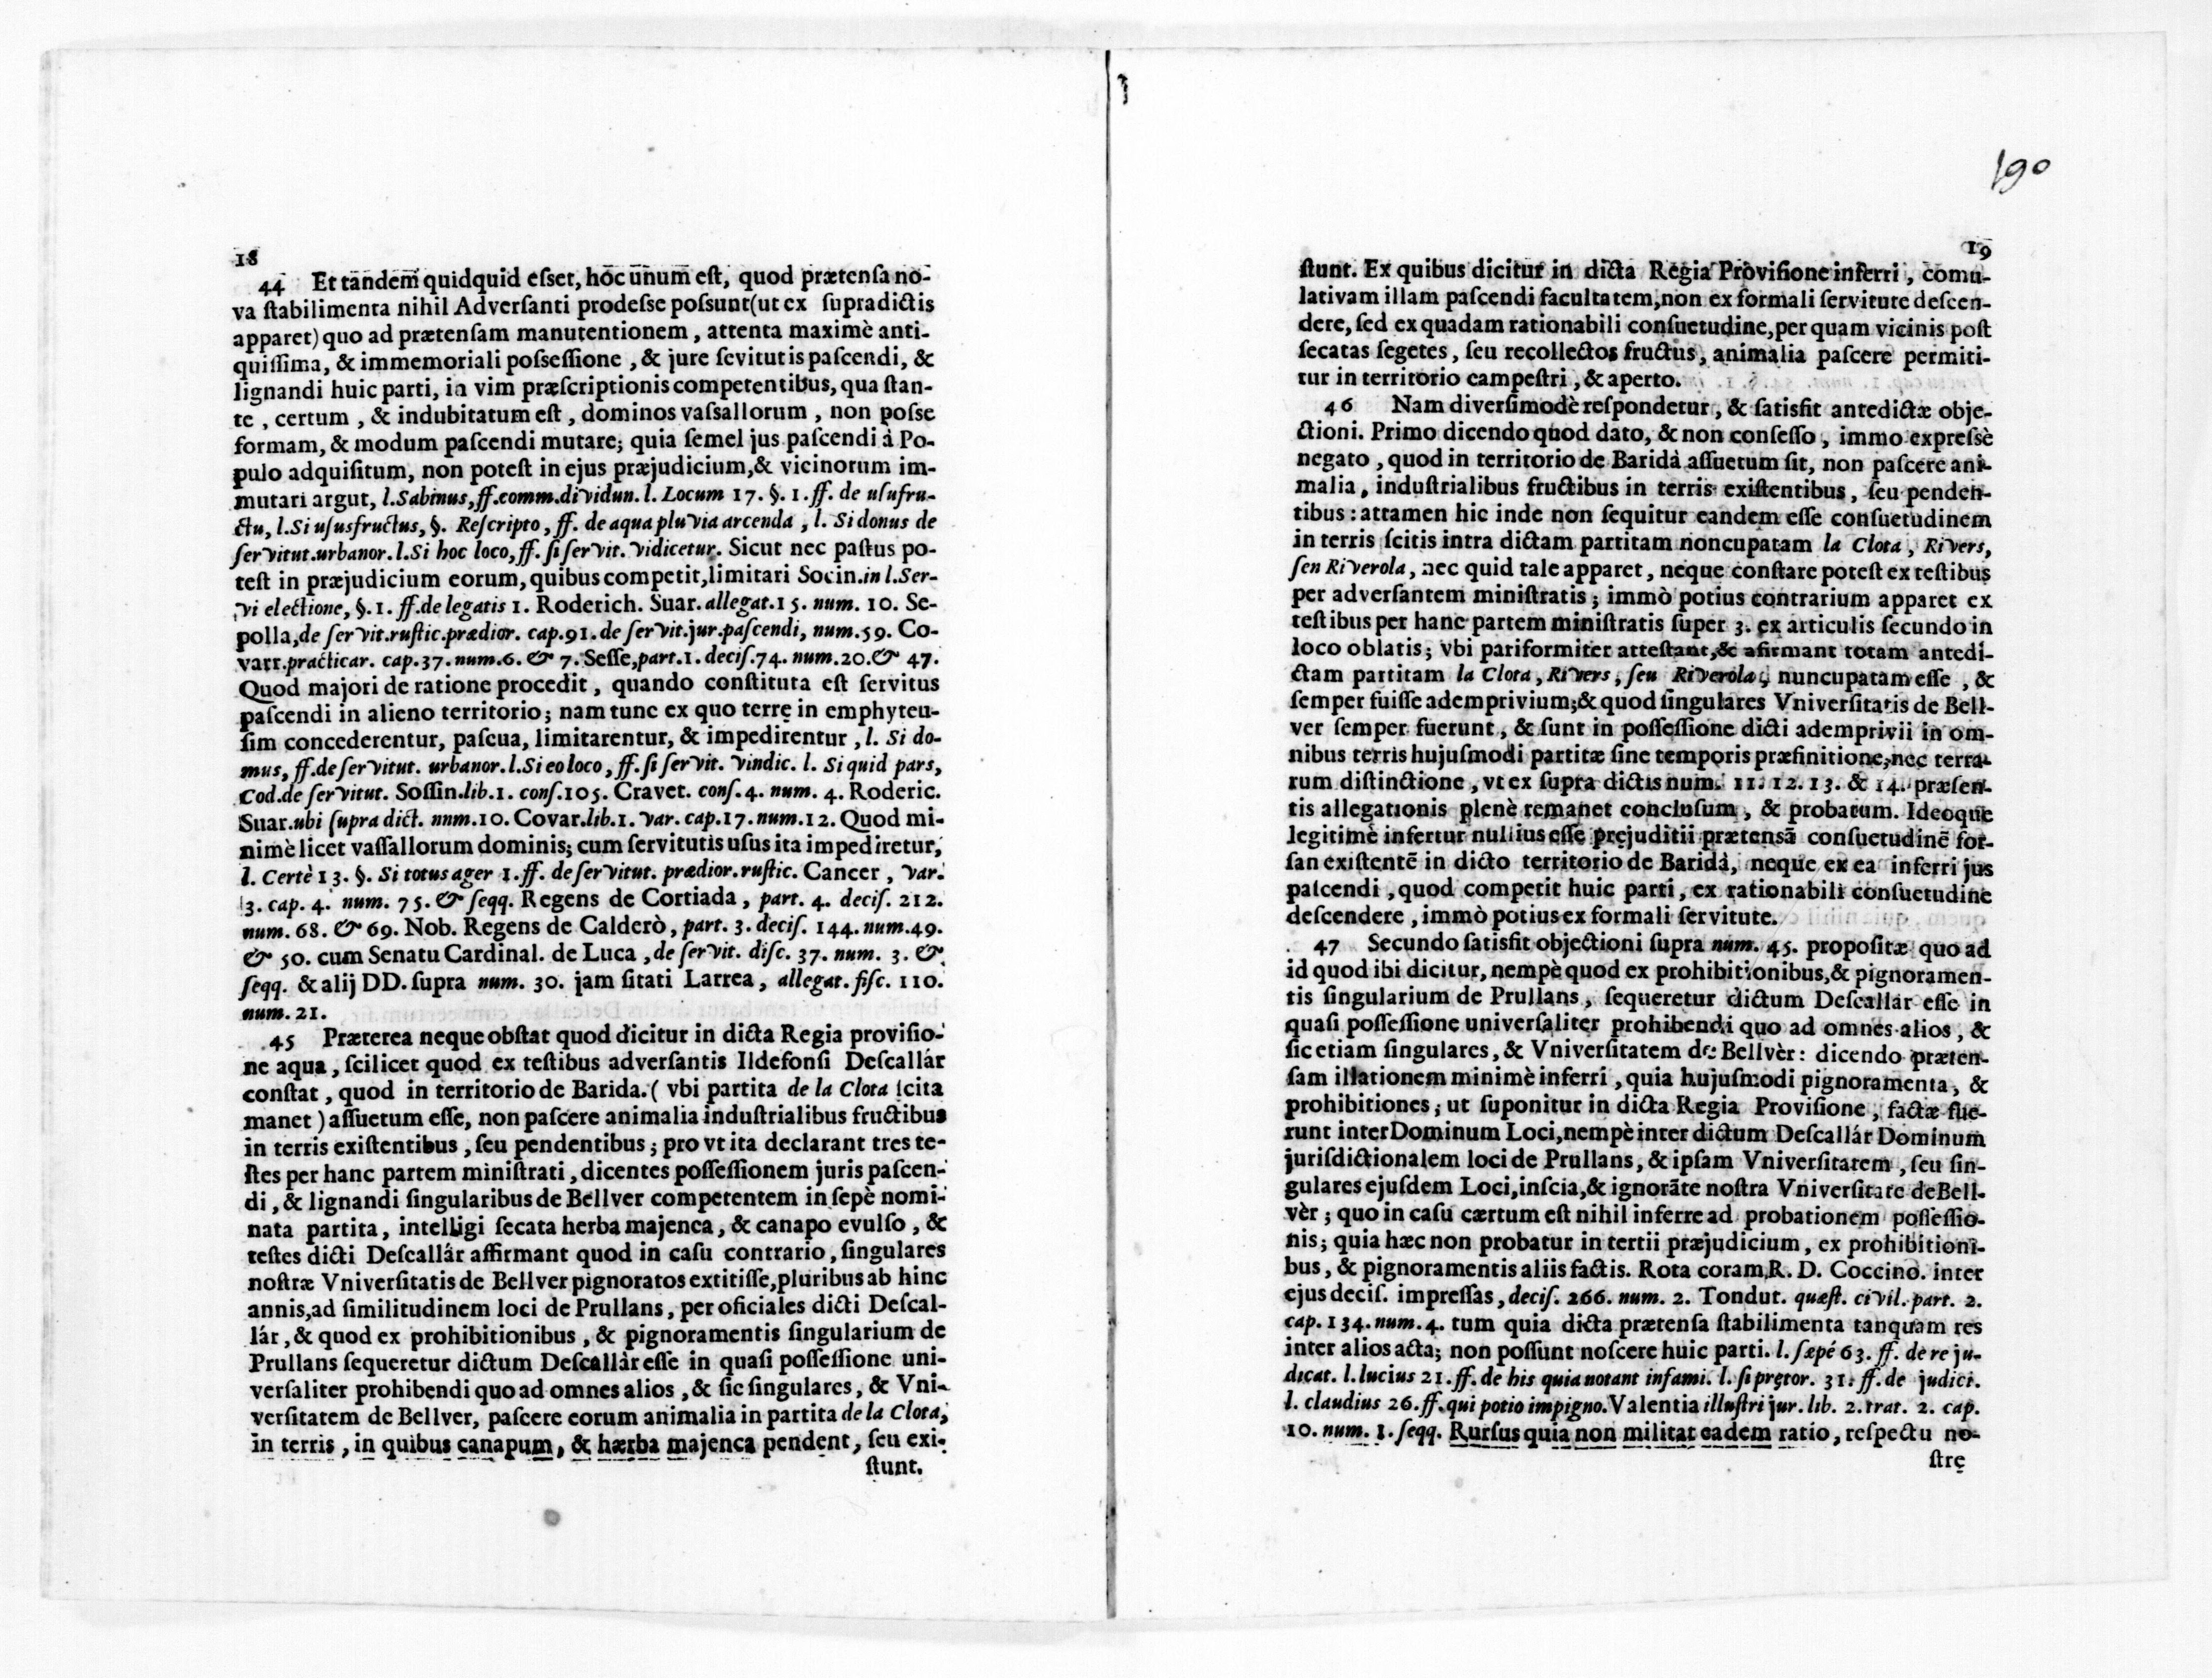 18
44 Et tandem quidquid esset, hoc unum est, quod prætensa no-
va stabilimenta nihil Adversanti prodesse possunt(ut ex supradictis
apparet) quo ad prætensam manutentionem, attenta maximè anti-
quissima, & immemoriali possessione, & jure sevitutis pascendi, &
lignandi huic parti, in vim præscriptionis competentibus, qua stan-
te, certum, & indubitatum est, dominos vassallorum, non posse
formam, & modum pascendi mutare; quia semel jus pascendi à Po-
pulo adquisitum, non potest in ejus præjudicium,& vicinorum im-
mutari argut, l.Sabinus,ff.comm.dividun. l. Locum 17. §. 1. ff. de usufru-
ctu, l.Si ususfructus, §. Rescripto, ff. de aqua pluvia arcenda, l. Si donus de
servitut.urbanor.l.Si hoc loco,ff. si servit. vidicetur. Sicut nec pastus po-
test in præjudicium eorum, quibus competit,limitari Socin.in l.Ser-
vi electione, §.1. ff.de legatis 1. Roderich. Suar. allegat.15. num. 10. Se-
polla,de servit.rustic.prædior. cap.91.de servit.jur.pascendi, num.59. Co-
varr.practicar. cap.37.num.6. & 7. Sesse,part.1. decis.74. num.20.& 47.
Quod majori de ratione procedit, quando constituta est servitus
pascendi in alieno territorio; nam tunc ex quo terrę in emphyteu-
sim concederentur, pascua, limitarentur, & impedirentur, l. Si do-
mus, ff.de servitut. urbanor.l.Si eo loco, ff. si servit. vindic. l. Si quid pars,
Cod.de servitut. Sossin.lib.1. cons.105. Cravet. cons. 4. num. 4. Roderic.
Suar.ubi supra dict. nnm.10. Covar.lib.1. var. cap.17.num.12. Quod mi-
nimè licet vassallorum dominis; cum servitutis usus ita impediretur,
l. Certè 13. §. Si totus ager 1.ff. de servitut. prædior.rustic. Cancer, var.
3. cap. 4. num. 75. & seqq. Regens de Cortiada, part. 4. decis. 212.
num. 68. & 69. Nob. Regens de Calderò, part. 3. decis. 144. num.49.
& 50. cum Senatu Cardinal. de Luca, de servit. disc. 37. num. 3. &
seqq. & alij DD. supra num. 30. jam sitati Larrea, allegat. fisc. 110.
num. 21.
45 Præterea neque obstat quod dicitur in dicta Regia provisio-
ne aqua, scilicet quod ex testibus adversantis Ildefonsi Descallár
constat, quod in territorio de Barida. ( vbi partita de la Clota scita
manet ) assuetum esse, non pascere animalia industrialibus fructibus
in terris existentibus, seu pendentibus; pro vt ita declarant tres te-
stes per hanc partem ministrati, dicentes possessionem juris pascen-
di, & lignandi singularibus de Bellver competentem in sepè nomi-
nata partita, intelligi secata herba majenca, & canapo evulso, &
testes dicti Descallár affirmant quod in casu contrario, singulares
nostræ Vniversitatis de Bellver pignoratos extitisse,pluribus ab hinc
annis,ad similitudinem loci de Prullans, per oficiales dicti Descal-
lár, & quod ex prohibitionibus, & pignoramentis singularium de
Prullans sequeretur dictum Descallàr esse in quasi possessione uni-
versaliter prohibendi quo ad omnes alios, & sic singulares, & Vni-
versitatem de Bellver, pascere eorum animalia in partita de la Clota,
in terris, in quibus canapum, & hærba majenca pendent, seu exi-
stunt.
190
19
stunt. Ex quibus dicitur in dicta Regia Provisione inferri, comu-
lativam illam pascendi facultatem,non ex formali servitute descen-
dere, sed ex quadam rationabili consuetudine,per quam vicinis post
secatas segetes, seu recollectos fructus, animalia pascere permiti-
tur in territorio campestri, & aperto.
46 Nam diversimodè respondetur, & satisfit antedictæ obje-
ctioni. Primo dicendo quod dato, & non confesso, immo expressè
negato, quod in territorio de Baridà assuetum sit, non pascere ani-
malia, industrialibus fructibus in terris existentibus, seu penden-
tibus: attamen hic inde non sequitur eandem esse consuetudinem
in terris scitis intra dictam partitam noncupatam la Clota, Rivers,
sen Riverola, nec quid tale apparet, neque constare potest ex testibus
per adversantem ministratis; immò potius contrarium apparet ex
testibus per hanc partem ministratis super 3. ex articulis secundo in
loco oblatis; vbi pariformiter attestant,& afirmant totam antedi-
ctam partitam la Clota, Rivers, seu Riverola, nuncupatam esse, &
semper fuisse ademprivium;& quod singulares Vniversitatis de Bell-
ver semper fuerunt, & sunt in possessione dicti ademprivii in om-
nibus terris hujusmodi partitæ sine temporis præfinitione,nec terra-
rum distinctione, vt ex supra dictis num. 11. 12. 13. & 14. præsen-
tis allegationis plenè remanet conclusum, & probatum. Ideoque
legitimè infertur nullius esse prejuditii prætensā consuetudinē for-
san existentē in dicto territorio de Baridà, neque ex ea inferri jus
pascendi, quod competit huic parti, ex rationabili consuetudine
descendere, immò potius ex formali servitute.
47 Secundo satisfit objectioni supra num. 45. propositæ quo ad
id quod ibi dicitur, nempè quod ex prohibitionibus,& pignoramen-
tis singularium de Prullans, sequeretur dictum Descallár esse in
quasi possessione universaliter prohibendi quo ad omnes alios, &
sic etiam singulares, & Vniversitatem de Bellvèr: dicendo præten-
sam illationem minimè inferri, quia hujusmodi pignoramenta, &
prohibitiones; ut suponitur in dicta Regia Provisione, factæ fue-
runt inter Dominum Loci,nempè inter dictum Descallár Dominum
jurisdictionalem loci de Prullans, & ipsam Vniversitatem, seu sin-
gulares ejusdem Loci,inscia,& ignorāte nostra Vniversitate de Bell-
vèr; quo in casu cærtum est nihil inferre ad probationem possessio-
nis; quia hæc non probatur in tertii præjudicium, ex prohibitioni-
bus, & pignoramentis aliis factis. Rota coram R. D. Coccino. inter
ejus decis. impressas, decis. 266. num. 2. Tondut. quæst. civil. part. 2.
cap. 134. num. 4. tum quia dicta prætensa stabilimenta tanquam res
inter alios acta; non possunt noscere huic parti. l. sæpé 63. ff. de re ju-
dicat. l. lucius 21. ff. de his quia notant infami. l. si pretor. 31. ff. de judici.
l. claudius 26.ff.qui potio impigno. Valentia illustri jur. lib. 2. trat. 2. cap.
10. num. 1. seqq. Rursus quia non militat eadem ratio, respectu no-
strę